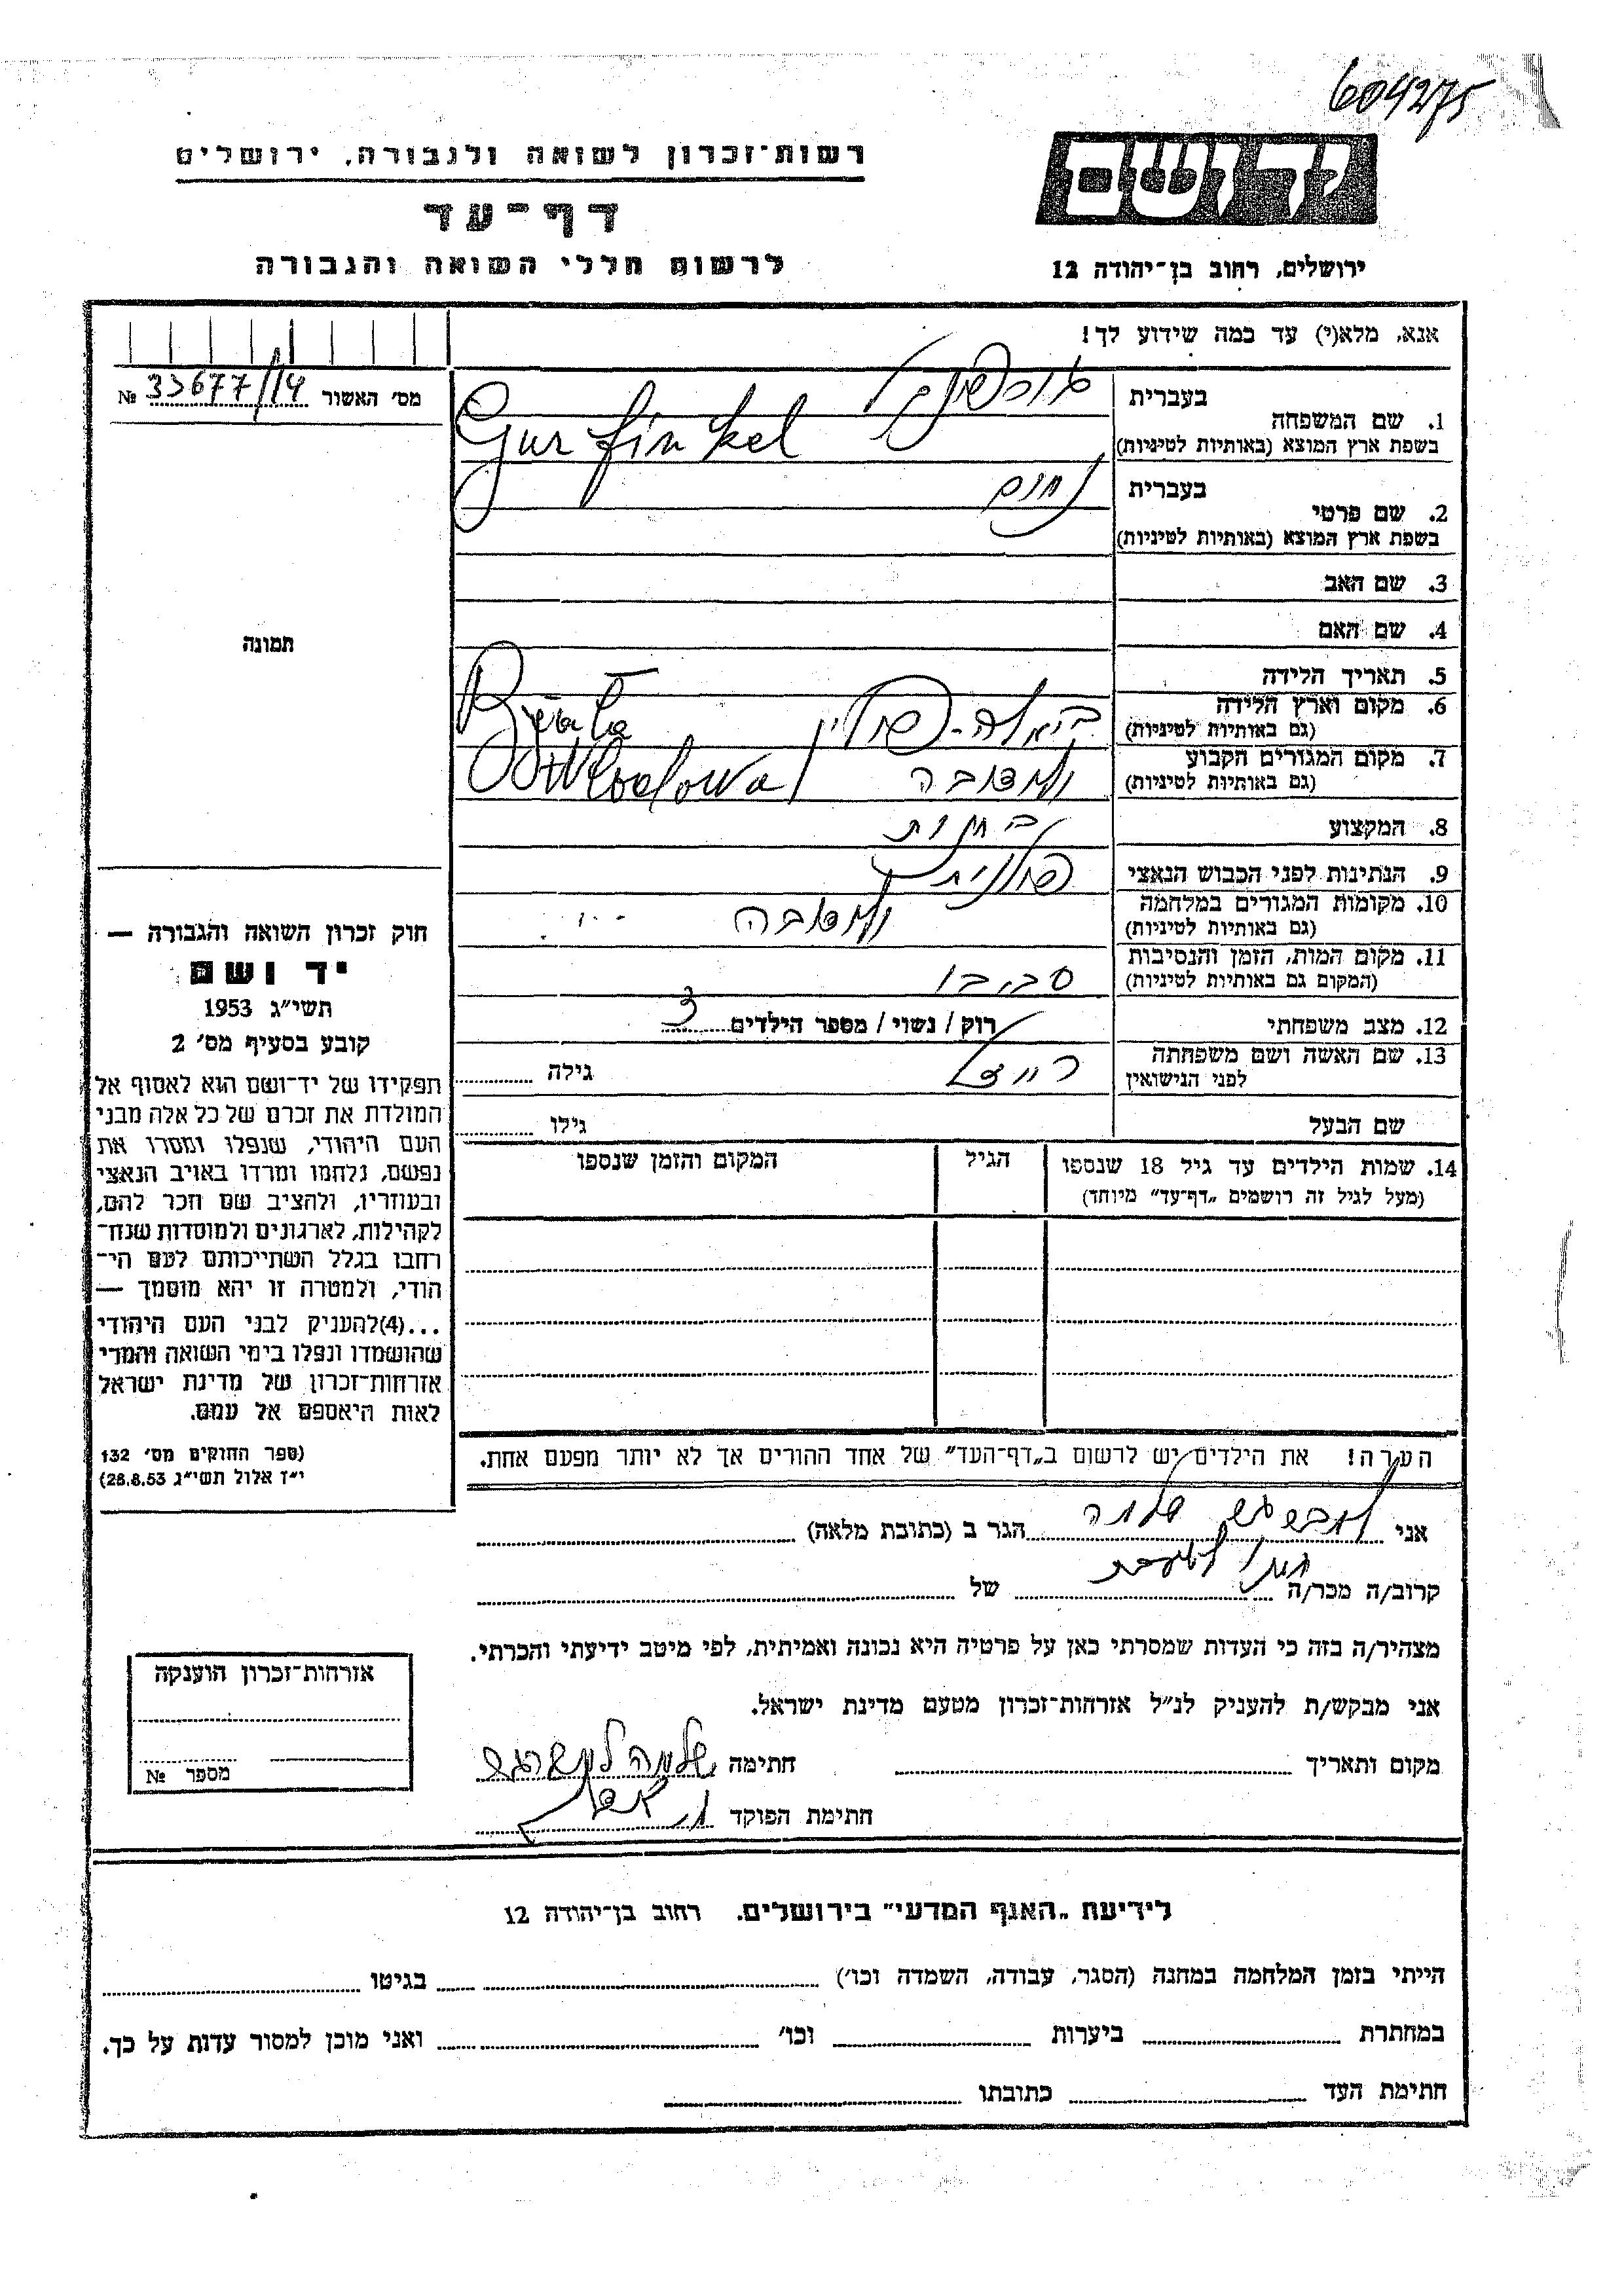 604275
יד ושם
ירושלים, רחוב בן־יהודה 12
רשות־זכרון לשואה ולגבורה, ירושלים
דף־עד
לרשום חללי השואה והגבורה
אנא, מלא(י) עד כמה שידוע לך!
מס׳ האשור № 33677/14
1. שם המשפחה
בעברית גורפינקל
בשפת ארץ המוצא (באותיות לטיניות) Gurfinkel
2. שם פרטי
בעברית נחום
בשפת ארץ המוצא (באותיות לטיניות)
3. שם האב
4. שם האם
5. תאריך הלידה
6. מקום וארץ הלידה
(גם באותיות לטיניות) ביאלה-פולין Biała
7. מקום המגורים הקבוע
(גם באותיות לטיניות) ולודבה Wlodowa
8. המקצוע
9. הנתינות לפני הכבוש הנאצי פולנית
10. מקומות המגורים במלחמה
(גם באותיות לטיניות) ולודבה
11. מקום המות, הזמן והנסיבות
(המקום גם באותיות לטיניות) סביבו
12. מצב משפחתי רוק / נשוי / מספר הילדים 3
13. שם האשה ושם משפחתה
לפני הנישואין רייזל גילה
שם הבעל גילו
14. שמות הילדים עד גיל 18 שנספו הגיל המקום והזמן שנספו
(מעל לגיל זה רושמים „דף־עד״ מיוחד)
הערה! את הילדים יש לרשום ב„דף־העד״ של אחד ההורים אך לא יותר מפעם אחת.
תמונה
חוק זכרון השואה והגבורה —
יד ושם
תשי״ג 1953
קובע בסעיף מס׳ 2
תפקידו של יד־ושם הוא לאסוף אל
המולדת את זכרם של כל אלה מבני
העם היהודי, שנפלו ומסרו את
נפשם, נלחמו ומרדו באויב הנאצי
ובעוזריו, ולהציב שם וזכר להם,
לקהילות, לארגונים ולמוסדות שנח־
רבו בגלל השתייכותם לעם הי־
הודי, ולמטרה זו יהא מוסמך —
...(4)להעניק לבני העם היהודי
שהושמדו ונפלו בימי השואה והמרי
אזרחות־זכרון של מדינת ישראל
לאות היאספם אל עמם.
(ספר החוקים מס׳ 132
י״ז אלול תשי״ג 28.8.53)
אני שלמה הגר ב (כתובת מלאה)
קרוב/ה מכר/ה של
מצהיר/ה בזה כי העדות שמסרתי כאן על פרטיה היא נכונה ואמיתית, לפי מיטב ידיעתי והכרתי.
אני מבקש/ת להעניק לנ״ל אזרחות־זכרון מטעם מדינת ישראל.
מקום ותאריך חתימה שלמה
חתימת הפוקד
אזרחות־זכרון הוענקה
מספר №
לידיעת „האגף המדעי״ בירושלים. רחוב בן־יהודה 12
הייתי בזמן המלחמה במחנה (הסגר, עבודה, השמדה וכו׳) בגיטו
במחתרת ביערות וכו׳ ואני מוכן למסור עדות על כך.
חתימת העד כתובתו